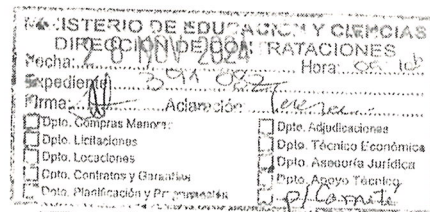 MINISTERIO DE EDUCACION Y CIENCIAS
DIRECCION DE CONTRATACIONES
26 NOV 2024
Fecha:.......... Hora:
Expediente: 391 082
Firma: Aclaración:
Dpto. Compras Menores
Dpto. Licitaciones
Dpto. Locaciones
Dpto. Contratos y Garantías
Dpto. Planificación y Programación
Dpto. Adjudicaciones
Dpto. Técnico Económica
Dpto. Asesoría Jurídica
Dpto. Apoyo Técnico
p/Comité